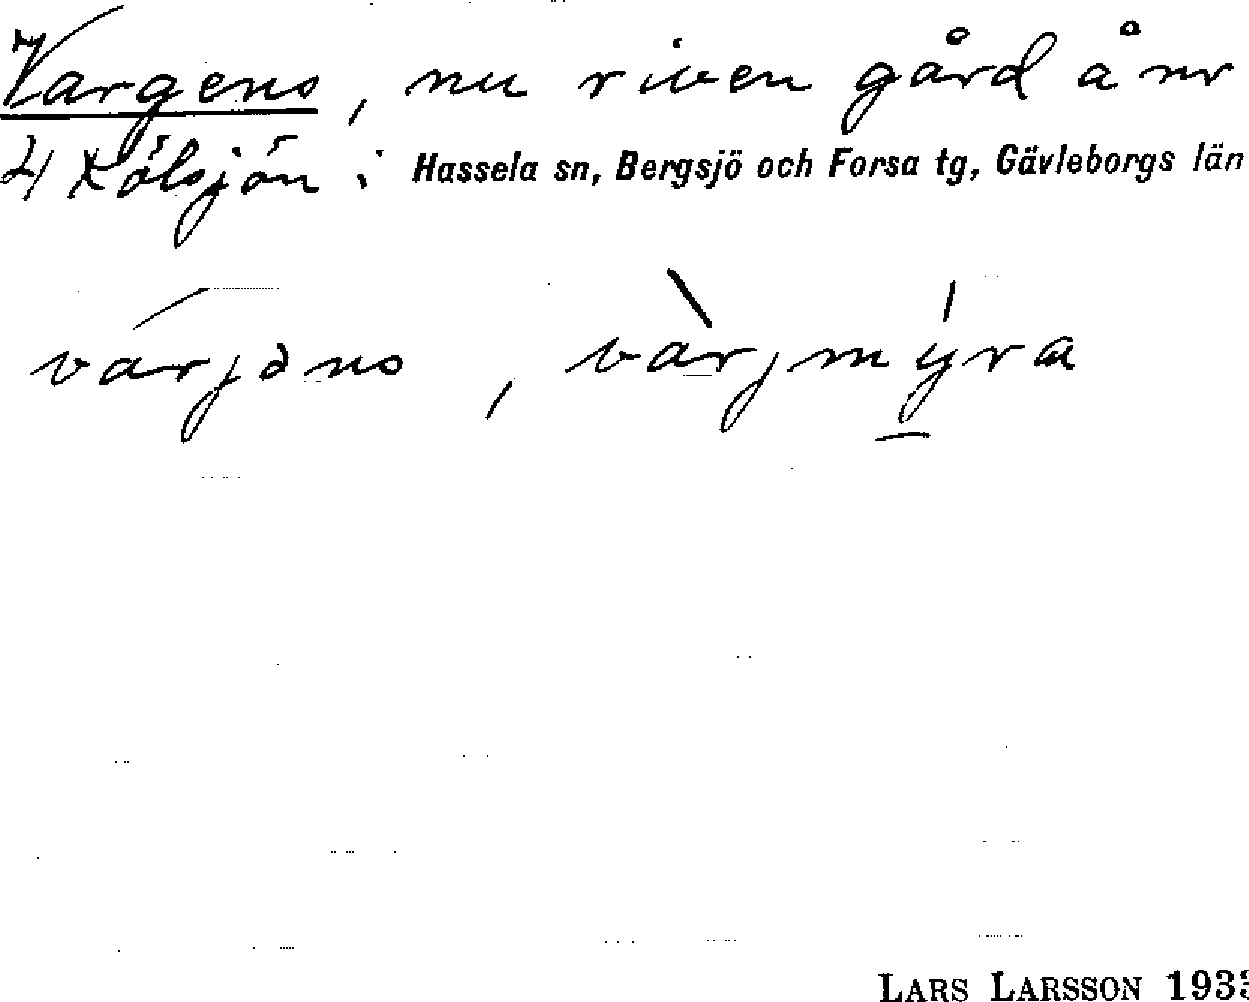 Vargens, nu riven gård å nr
4 Kölsjön i Hassela sn, Bergsjö och Forsa tg, Gävleborgs län
várjəns, vàrjmýra
LARS LARSSON 1933